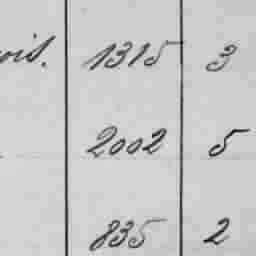 ois. 1315 3
2002 5
835 2